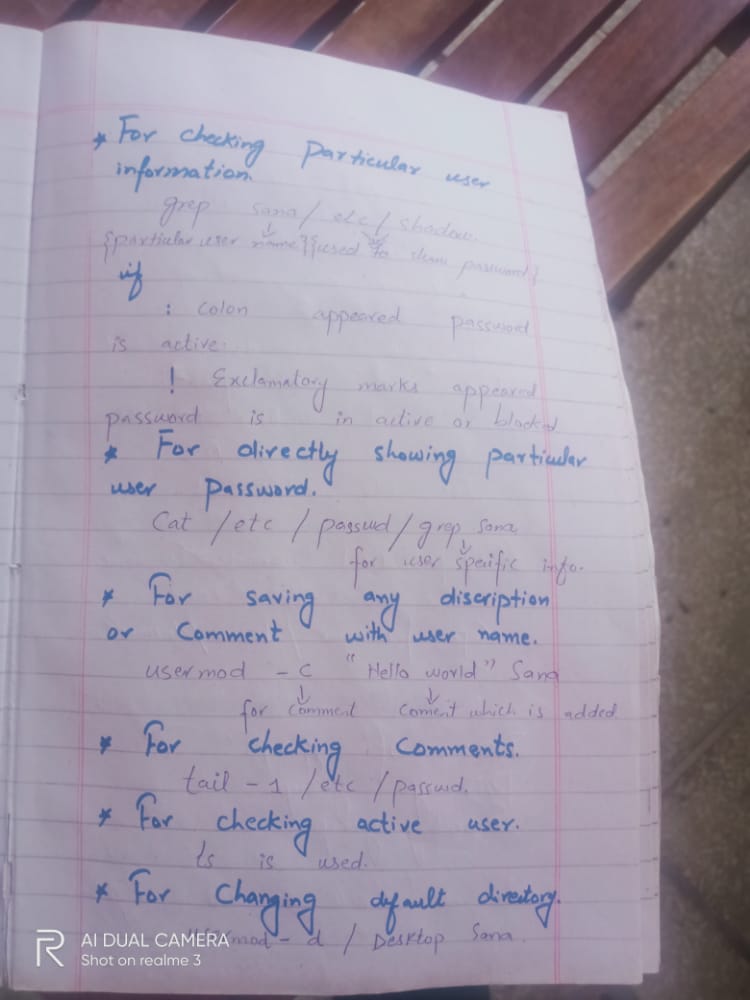 * For checking Particular user
information.
grep sana / etc / shadow.
{particular user name}{used to show password}
if
: Colon appeared password
is active.
! Exclamatory marks appeared
password is in active or blocked
* For directly showing particular
user Password.
Cat /etc / passwd / grep Sana
for user speific info.
* For saving any discription
or Comment with user name.
usermod - c "Hello world" Sana
for comment coment which is added
* For checking Comments.
tail - 1 /etc / passwd.
* For checking active user.
ls is used.
* For Changing default directory.
usermod - d / Desktop Sana.
R AI DUAL CAMERA
Shot on realme 3